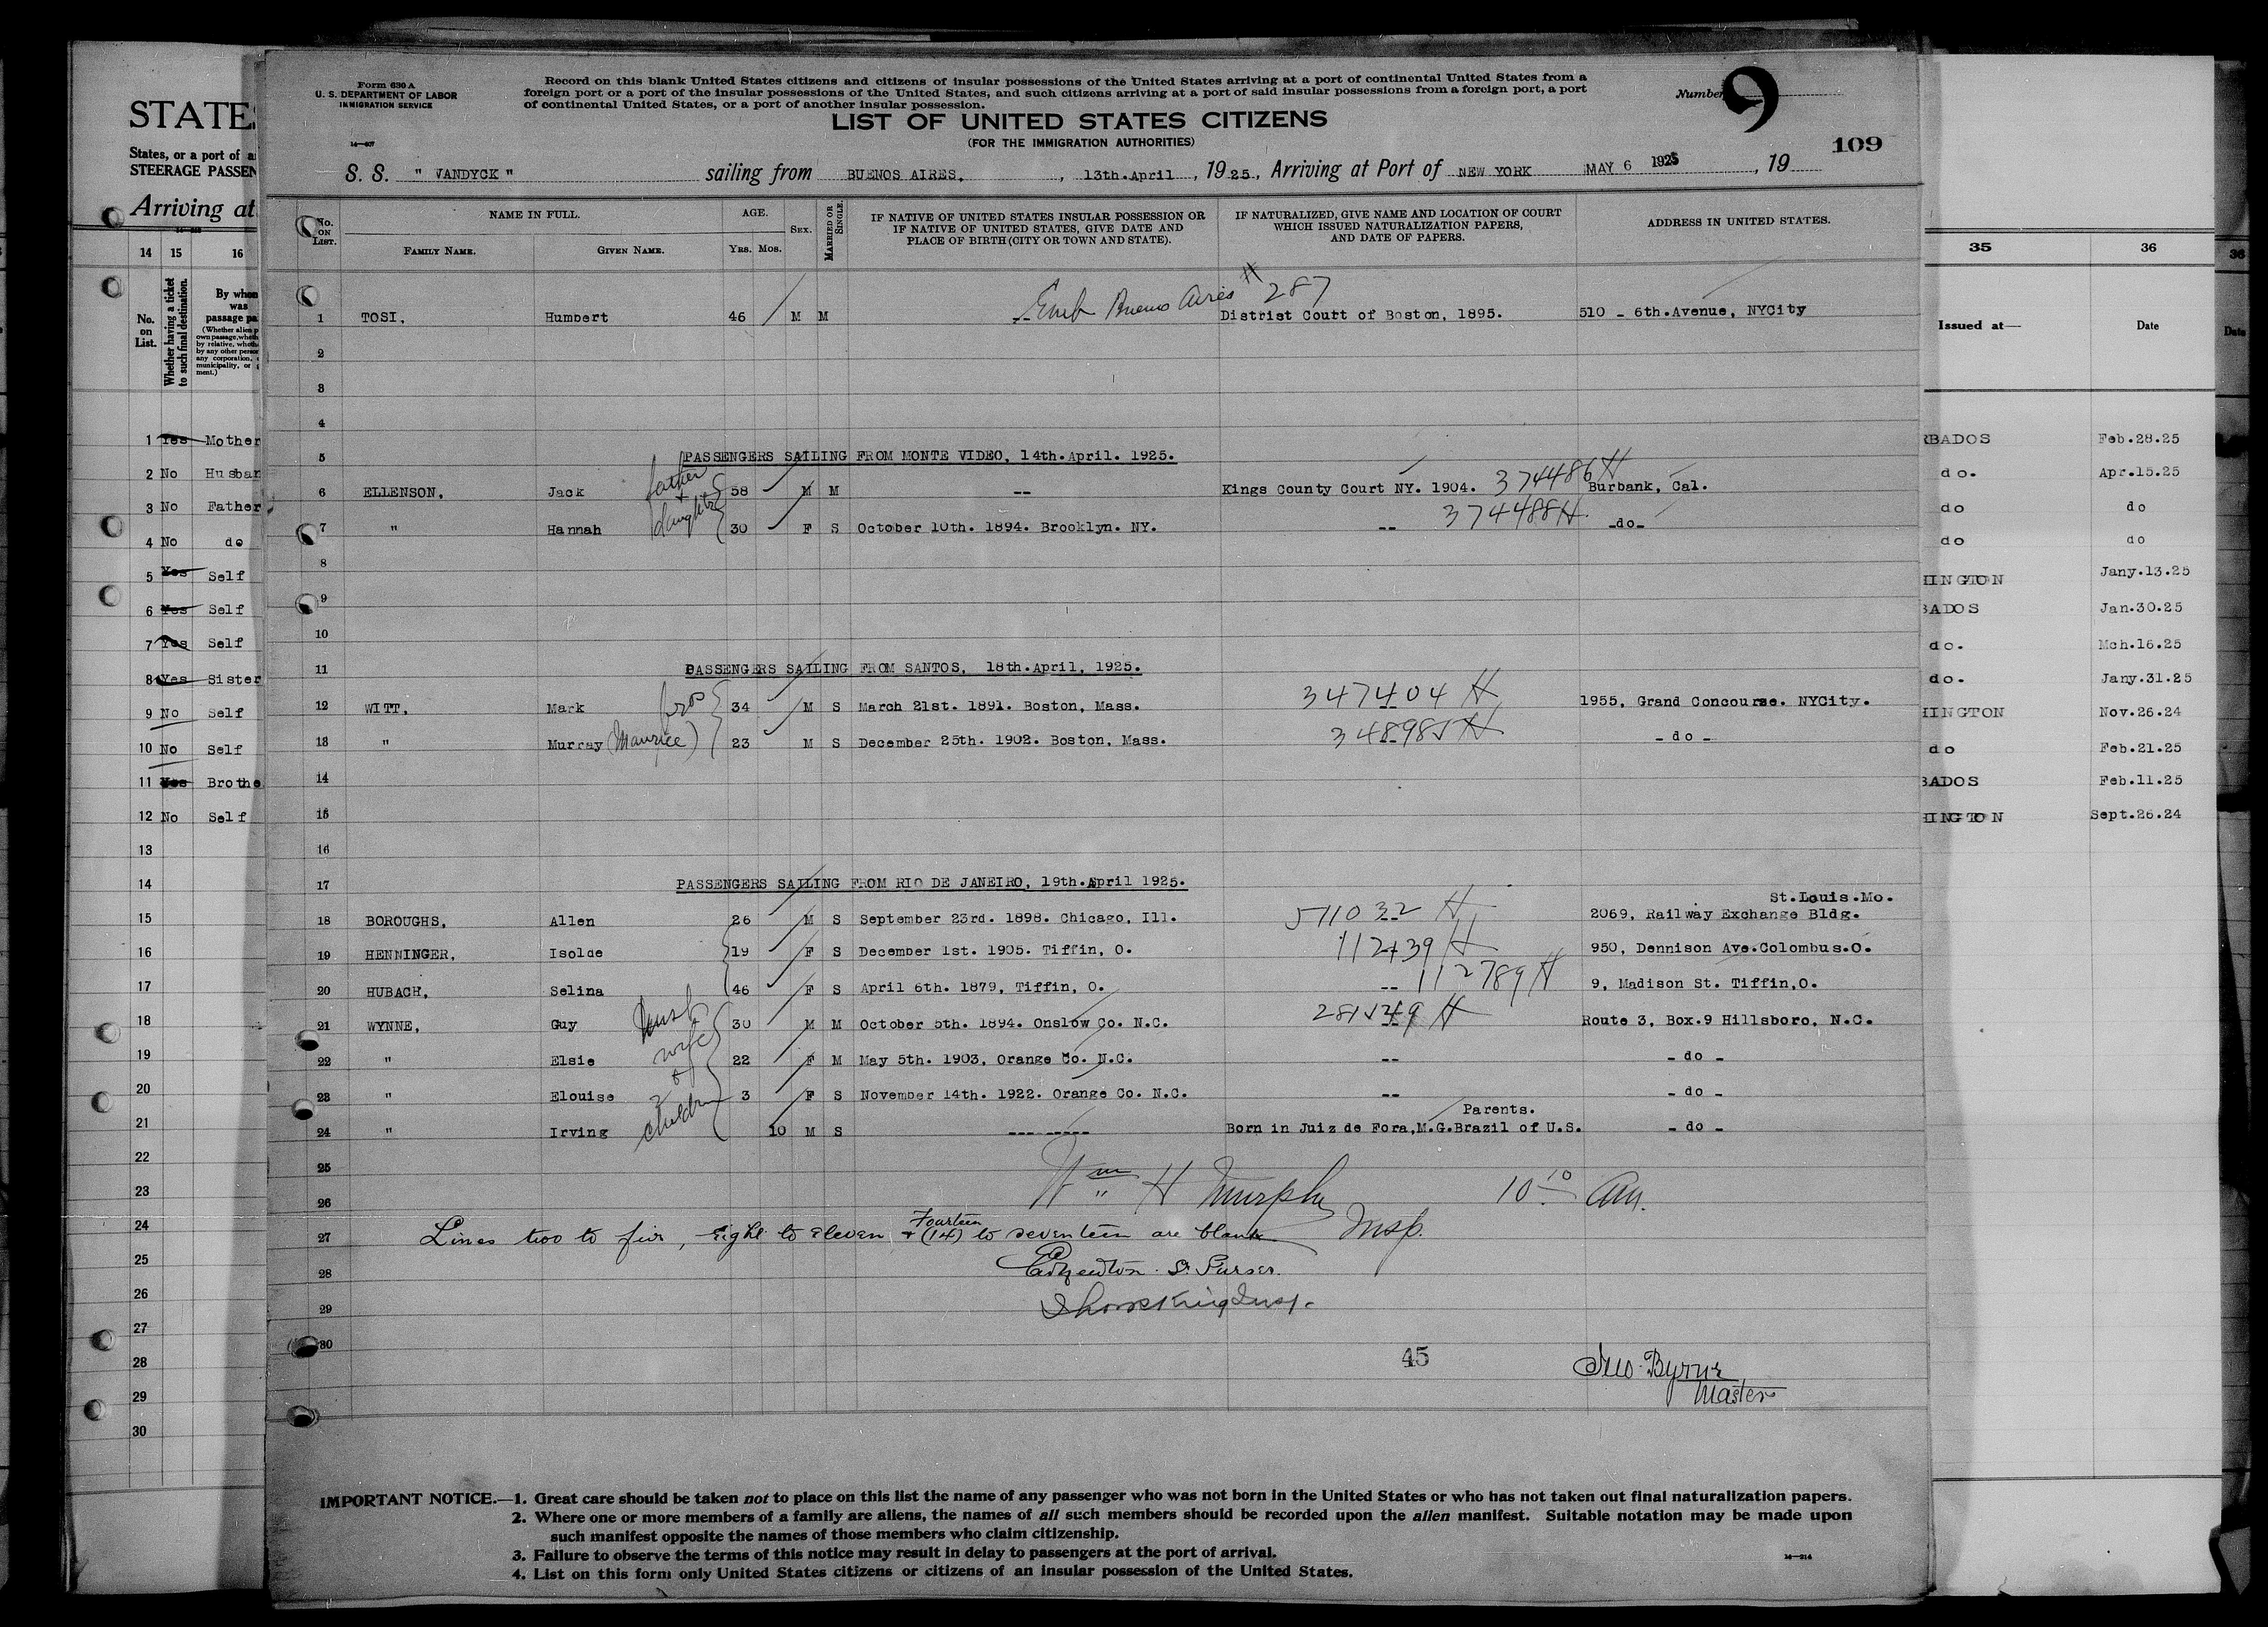 Form 630 A
U. S. DEPARTMENT OF LABOR
IMMIGRATION SERVICE
14—407
Record on this blank United States citizens and citizens of insular possessions of the United States arriving at a port of continental United States from a
foreign port or a port of the insular possessions of the United States, and such citizens arriving at a port of said insular possessions from a foreign port, a port
of continental United States, or a port of another insular possession.
Number 9
LIST OF UNITED STATES CITIZENS
(FOR THE IMMIGRATION AUTHORITIES)
109
S. S. " VANDYCK " sailing from BUENOS AIRES, , 13th.April , 1925, Arriving at Port of NEW YORK MAY 6 1925 , 19
No. ON LIST. NAME IN FULL. FAMILY NAME. GIVEN NAME. AGE. YRS. MOS. SEX. MARRIED OR SINGLE. IF NATIVE OF UNITED STATES INSULAR POSSESSION OR IF NATIVE OF UNITED STATES, GIVE DATE AND PLACE OF BIRTH (CITY OR TOWN AND STATE). IF NATURALIZED, GIVE NAME AND LOCATION OF COURT WHICH ISSUED NATURALIZATION PAPERS, AND DATE OF PAPERS. ADDRESS IN UNITED STATES.
Emb Buenos Aires # 287
1 TOSI, Humbert 46 M M -- District Court of Boston, 1895. 510 - 6th.Avenue, NYCity
2
3
4
5 PASSENGERS SAILING FROM MONTE VIDEO, 14th.April. 1925.
6 ELLENSON, Jack father + 58 M M -- Kings County Court NY. 1904. 374486 H Burbank, Cal.
7 " Hannah daughter 30 F S October 10th. 1894. Brooklyn. NY. -- 374488 H -do-
8
9
10
11 PASSENGERS SAILING FROM SANTOS, 18th.April, 1925.
12 WITT, Mark bros 34 M S March 21st. 1891. Boston, Mass. 347404 H 1955, Grand Concourse. NYCity.
13 " Murray (Maurice) 23 M S December 25th. 1902. Boston, Mass. 348985 H - do -
14
15
16
17 PASSENGERS SAILING FROM RIO DE JANEIRO, 19th.April 1925.
St.Louis.Mo.
18 BOROUGHS, Allen 26 M S September 23rd. 1898. Chicago, Ill. 511032 H 2069, Railway Exchange Bldg.
19 HENNINGER, Isolde 19 F S December 1st. 1905. Tiffin, O. 112439 H 950, Dennison Ave.Colombus.O.
20 HUBACH, Selina 46 F S April 6th. 1879, Tiffin, O. -- 112789 H 9, Madison St. Tiffin,O.
21 WYNNE, Guy husb 30 M M October 5th. 1894. Onslow Co. N.C. H Route 3, Box.9 Hillsboro, N.C.
22 " Elsie wife 22 F M May 5th. 1903, Orange Co. N.C. -- - do -
23 " Elouise + 2 3 F S November 14th. 1922. Orange Co. N.C. -- - do -
Parents.
24 " Irving children 10 M S --- ----- Born in Juiz de Fora,M.G.Brazil of U.S. - do -
25
26 Wm H Murphy 10 10 am.
Fourteen
27 Lines two to five, eight to eleven + (14) to seventeen are blank Insp.
28 Sr Purser.
29
30
45
Geo Byrne
Master
IMPORTANT NOTICE.—1. Great care should be taken not to place on this list the name of any passenger who was not born in the United States or who has not taken out final naturalization papers.
2. Where one or more members of a family are aliens, the names of all such members should be recorded upon the alien manifest. Suitable notation may be made upon
such manifest opposite the names of those members who claim citizenship.
3. Failure to observe the terms of this notice may result in delay to passengers at the port of arrival.
4. List on this form only United States citizens or citizens of an insular possession of the United States.
14—214
STATES
States, or a port of a
STEERAGE PASSEN
Arriving at
14 15 16
No. on List. Whether having a ticket to such final destination. By whom was passage pa
1 Yes Mother
2 No Husban
3 No Father
4 No do
5 Yes Self
6 Yes Self
7 Yes Self
8 Yes Sister
9 No Self
10 No Self
11 Yes Brothe
12 No Self
13
14
15
16
17
18
19
20
21
22
23
24
25
26
27
28
29
30
35 36
Issued at— Date
RBADOS Feb.28.25
do. Apr.15.25
do do
do do
HINGTON Jany.13.25
BADOS Jan.30.25
do. Mch.16.25
do. Jany.31.25
HINGTON Nov.26.24
do Feb.21.25
BADOS Feb.11.25
HINGTON Sept.26.24
36
Date